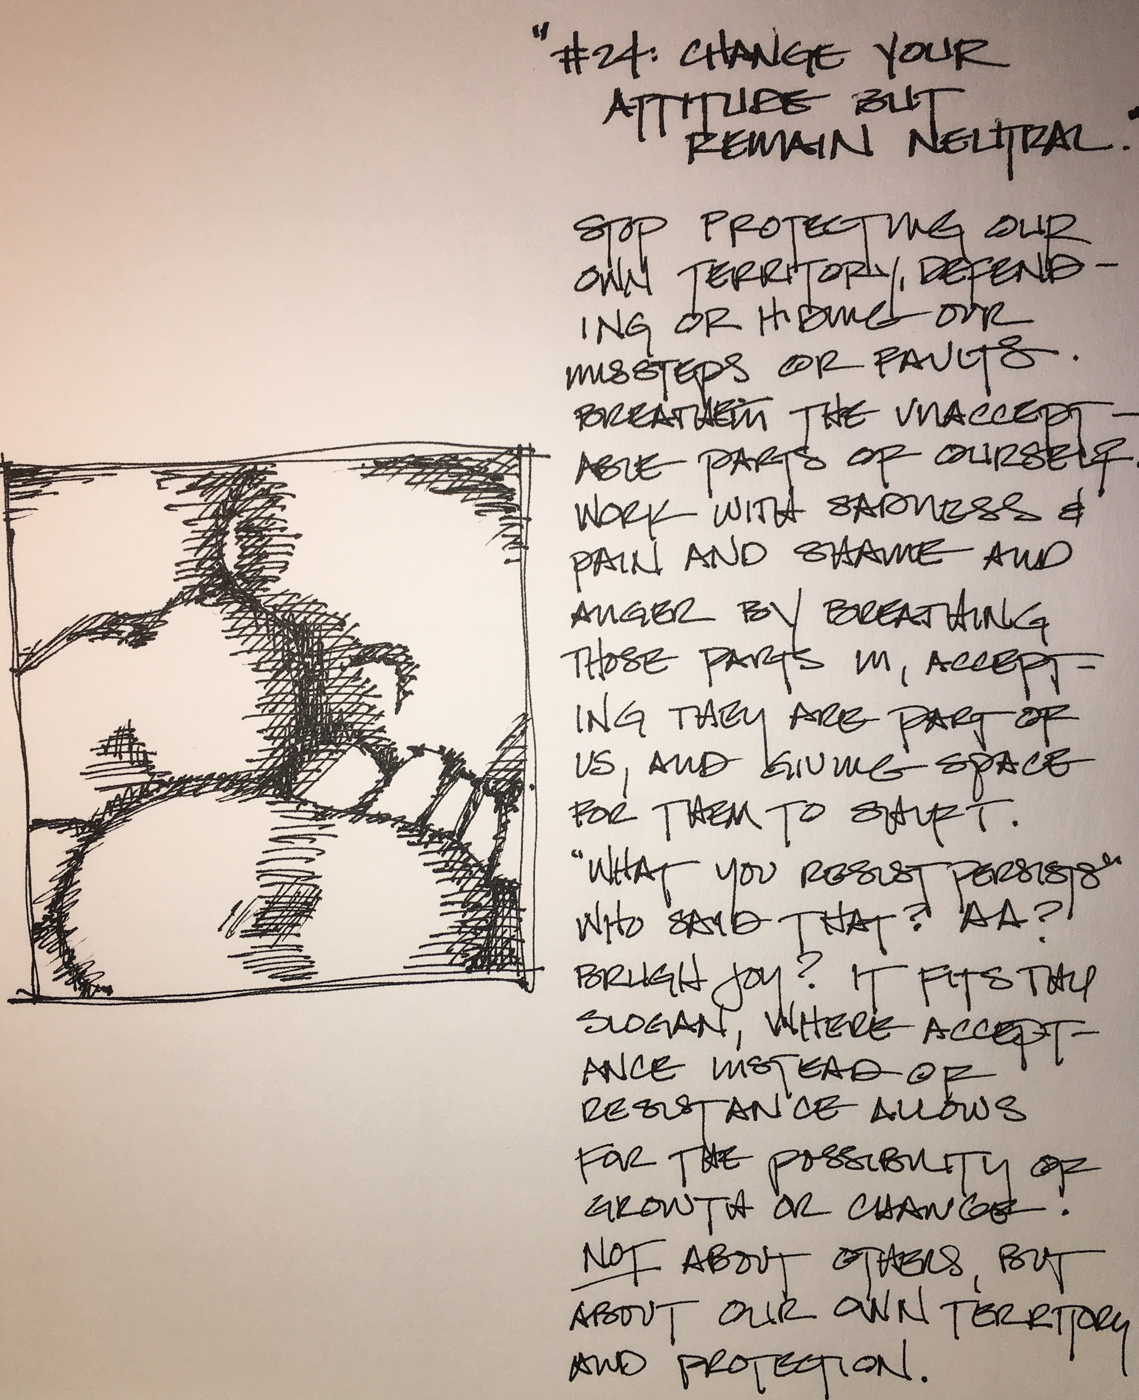 "#24: CHANGE YOUR
ATTITUDE BUT
REMAIN NEUTRAL."
STOP PROTECTING OUR
OWN TERRITORY, DEFEND-
ING OR HIDING OUR
MISSTEPS OR FAULTS.
THE UNACCEPT-
ABLE PARTS OF OURSELF.
WORK WITH SADNESS &
PAIN AND SHAME AND
ANGER BY BREATHING
THOSE PARTS IN, ACCEPT-
ING THEY ARE PART OF
US, AND GIVING SPACE
FOR THEM TO
"WHAT YOU RESIST PERSISTS"
WHO SAID THAT? AA?
BRUGH JOY? IT FITS THIS
SLOGAN, WHERE ACCEPT-
ANCE INSTEAD OF
RESISTANCE ALLOWS
FOR THE POSSIBILITY OF
GROWTH OR CHANGE.
NOT ABOUT OTHERS, BUT
ABOUT OUR OWN TERRITORY
AND PROTECTION.